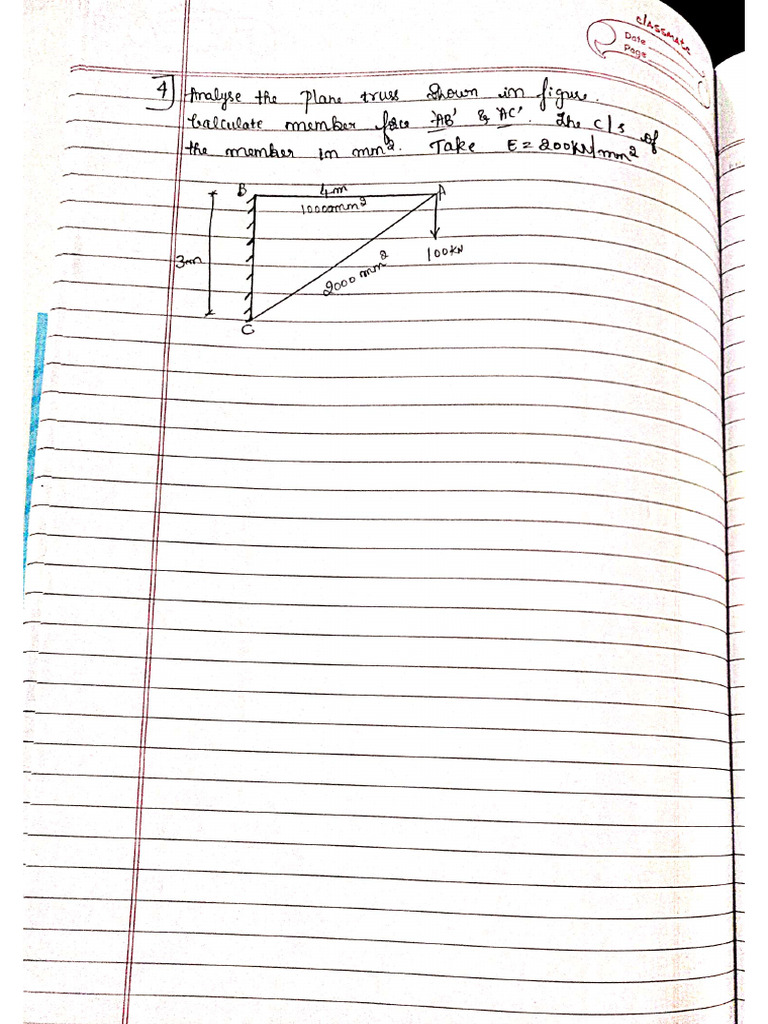 classmate
Date
Page
4] Analyse the plane truss shown in figure.
Calculate member force 'AB' & 'AC'. The c/s of
the member in mm². Take E = 200KN/mm²
B 4m A
1000mm²
3m
100KN
2000 mm²
C